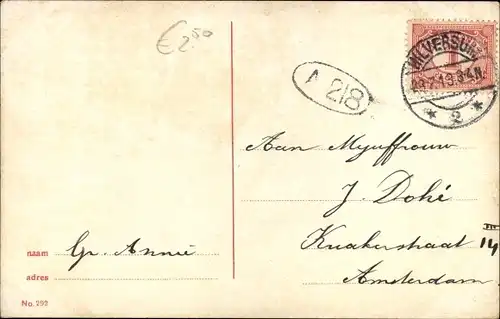 € 2.50
A 218
HILVERSUM
2
Aan Mejuffrouw
J. Dohé
Kuakerstraat 14
Amsterdam
naam Gr. Annie
adres
No. 292